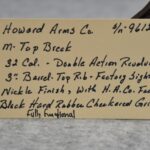 Howard Arms Co. S/n-9612
M- Top Break
32 Cal. - Double Action Revolv
3" Barrel-Top Rib- Factory Sight
Nickle Finish, with H.A.Co. Fan
Black Hard Rubber Checkered Gri
Fully Functional